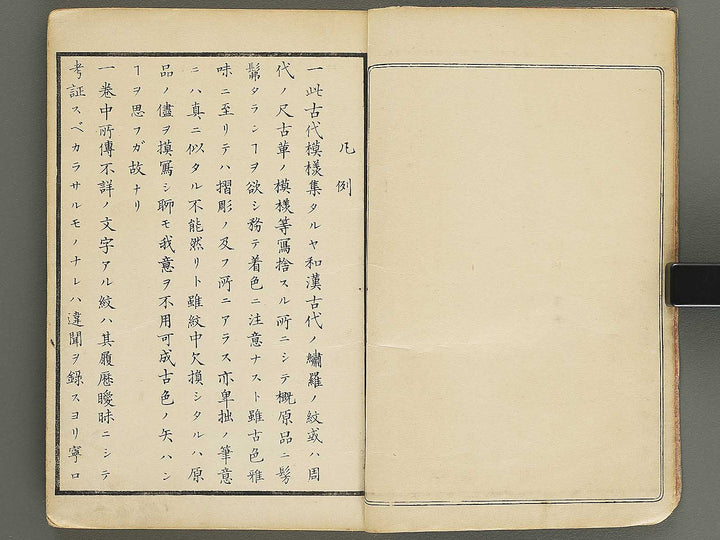 凡例
一此古代模様集タルヤ和漢古代ノ繍羅ノ紋或ハ周
代ノ尺古華ノ模様等写捨スル所ニシテ概原品ニ髣
髴タランヿヲ欲シ務テ着色ニ注意ナスト雖古色雅
味ニ至リテハ摺彫ノ及フ所ニアラス亦卑拙ノ筆意
ニハ真ニ似タル不能然リト雖紋中欠損シタルハ原
品ノ儘ヲ摸写シ聊モ我意ヲ不用可成古色ノ矢ハン
ヿヲ思フガ故ナリ
一巻中所傳不詳ノ文字アル紋ハ其履歴曖昧ニシテ
考証スベカラサルモノナレハ違聞ヲ録スヨリ寧ロ